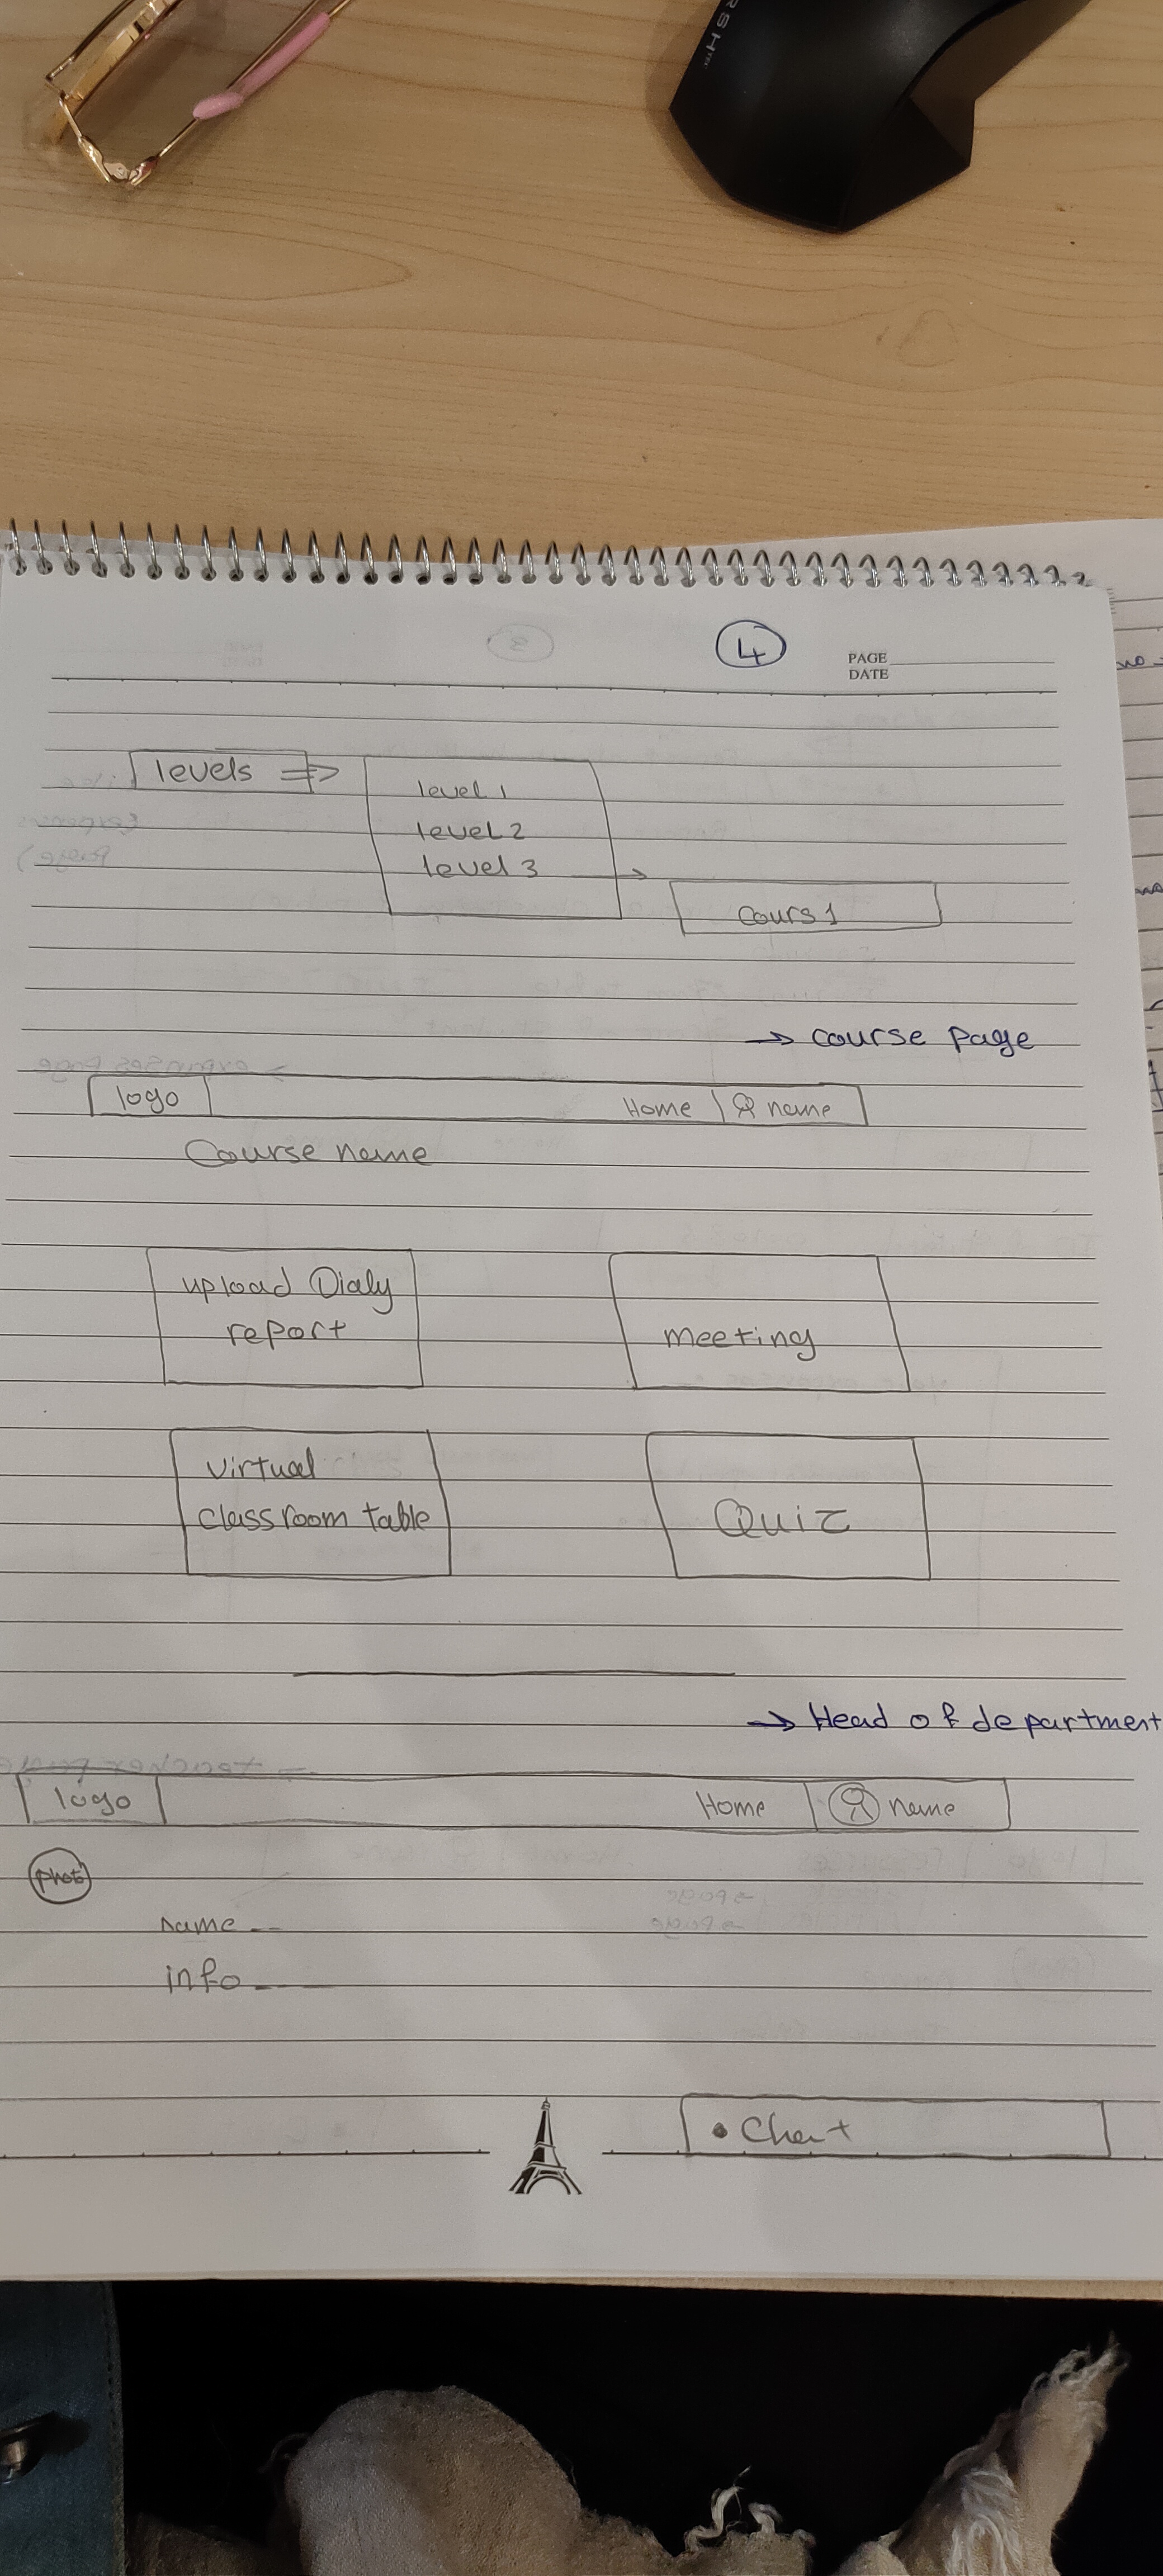 4
PAGE
DATE
levels ⇒
level 1
level 2
level 3 →
Cours 1
→ course page
logo Home name
Course name
upload Dialy
report
meeting
virtual
classroom table
Quiz
→ Head of department
logo Home name
photo
name
info
• Chat